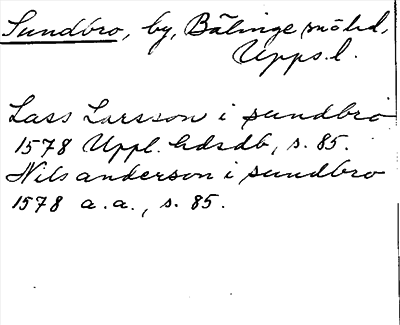 Sundbro, by, Bälinge sn o hd,
Upps.l.
Lass Larsson i sundbro
1578 Uppl. hdrdb, s. 85.
Nils anderson i sundbro
1578 a.a., s. 85.